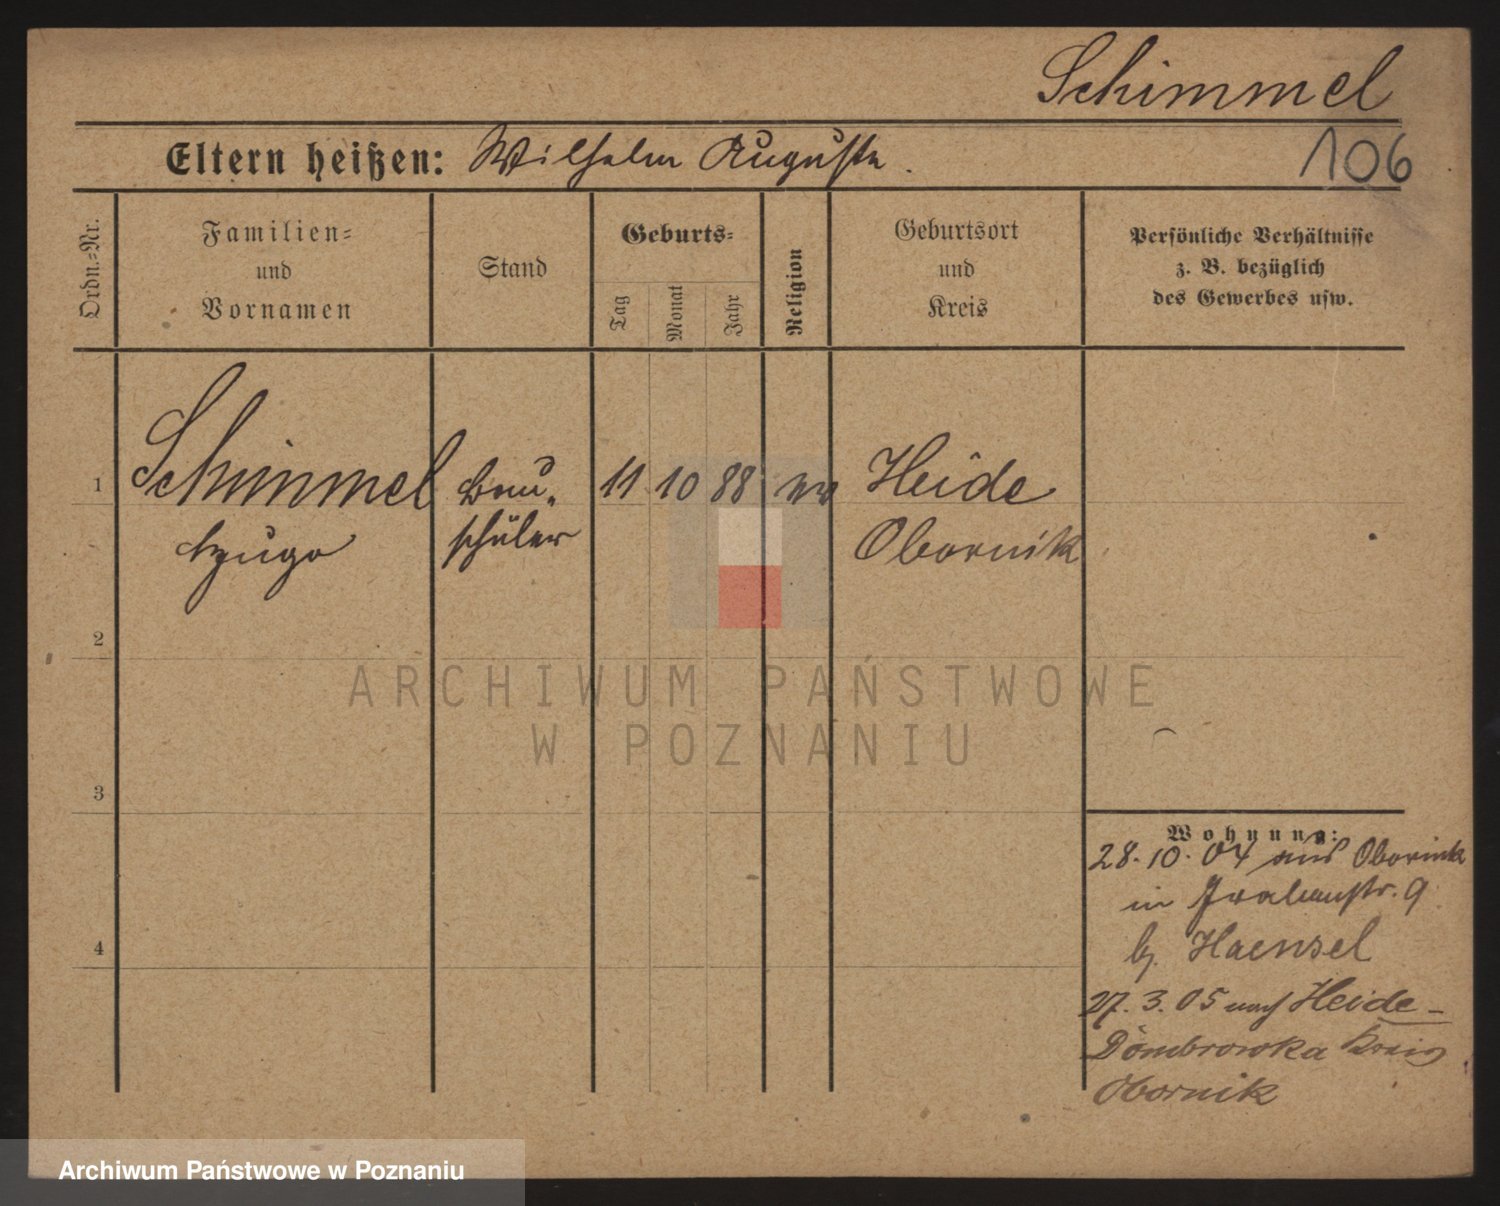 Schimmel
Eltern heißen: Wilhelm Auguste.
106
Ordn.=Nr.
Familien=
und
Vornamen
Stand
Geburts=
Tag
Monat
Jahr
Religion
Geburtsort
und
Kreis
Persönliche Verhältnisse
z. B. bezüglich
des Gewerbes usw.
1 Schimmel Bau- 11 10 88 ev Heide
Hugo schüler Obornik
2
3
4
Wohnung:
28.10.04 aus Obornik
in 9
b. Haensel
27.3.05 nach Heide-
Dombrowka Kreis
Obornik
ARCHIWUM PAŃSTWOWE
W POZNANIU
Archiwum Państwowe w Poznaniu